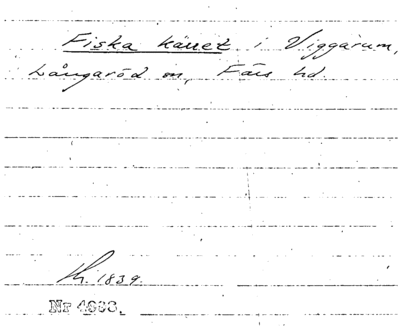 Fiska kärret i Viggarum,
Långaröd sn, Färs hd
Lk. 1839.
Nr 4668.